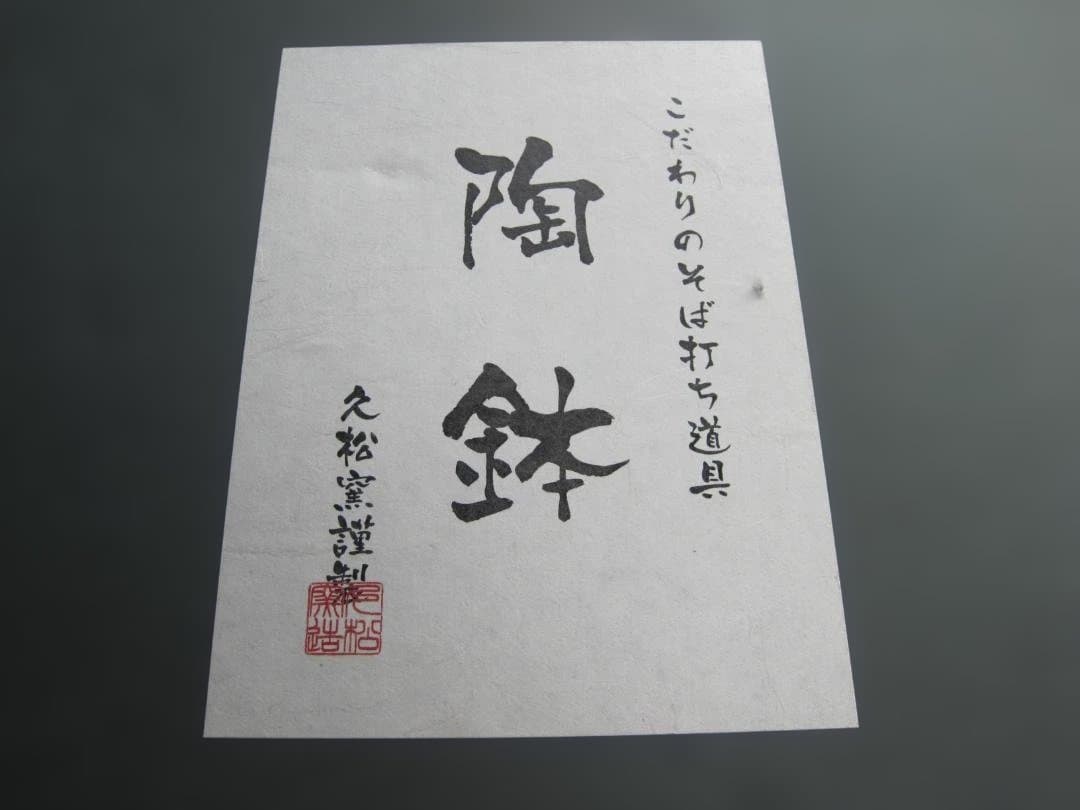 こだわりのそば打ち道具
陶鉢
久松窯謹製
久松
窯造